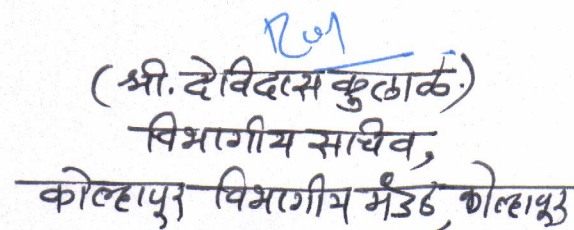 (श्री. देविदास कुलाळ.)
विभागीय सचिव,
कोल्हापुर विभागीय मंडळ, कोल्हापुर